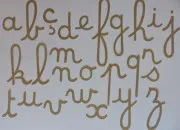 a b c ç d e f g h i j
k l m n o p q r s
t u v w x y z